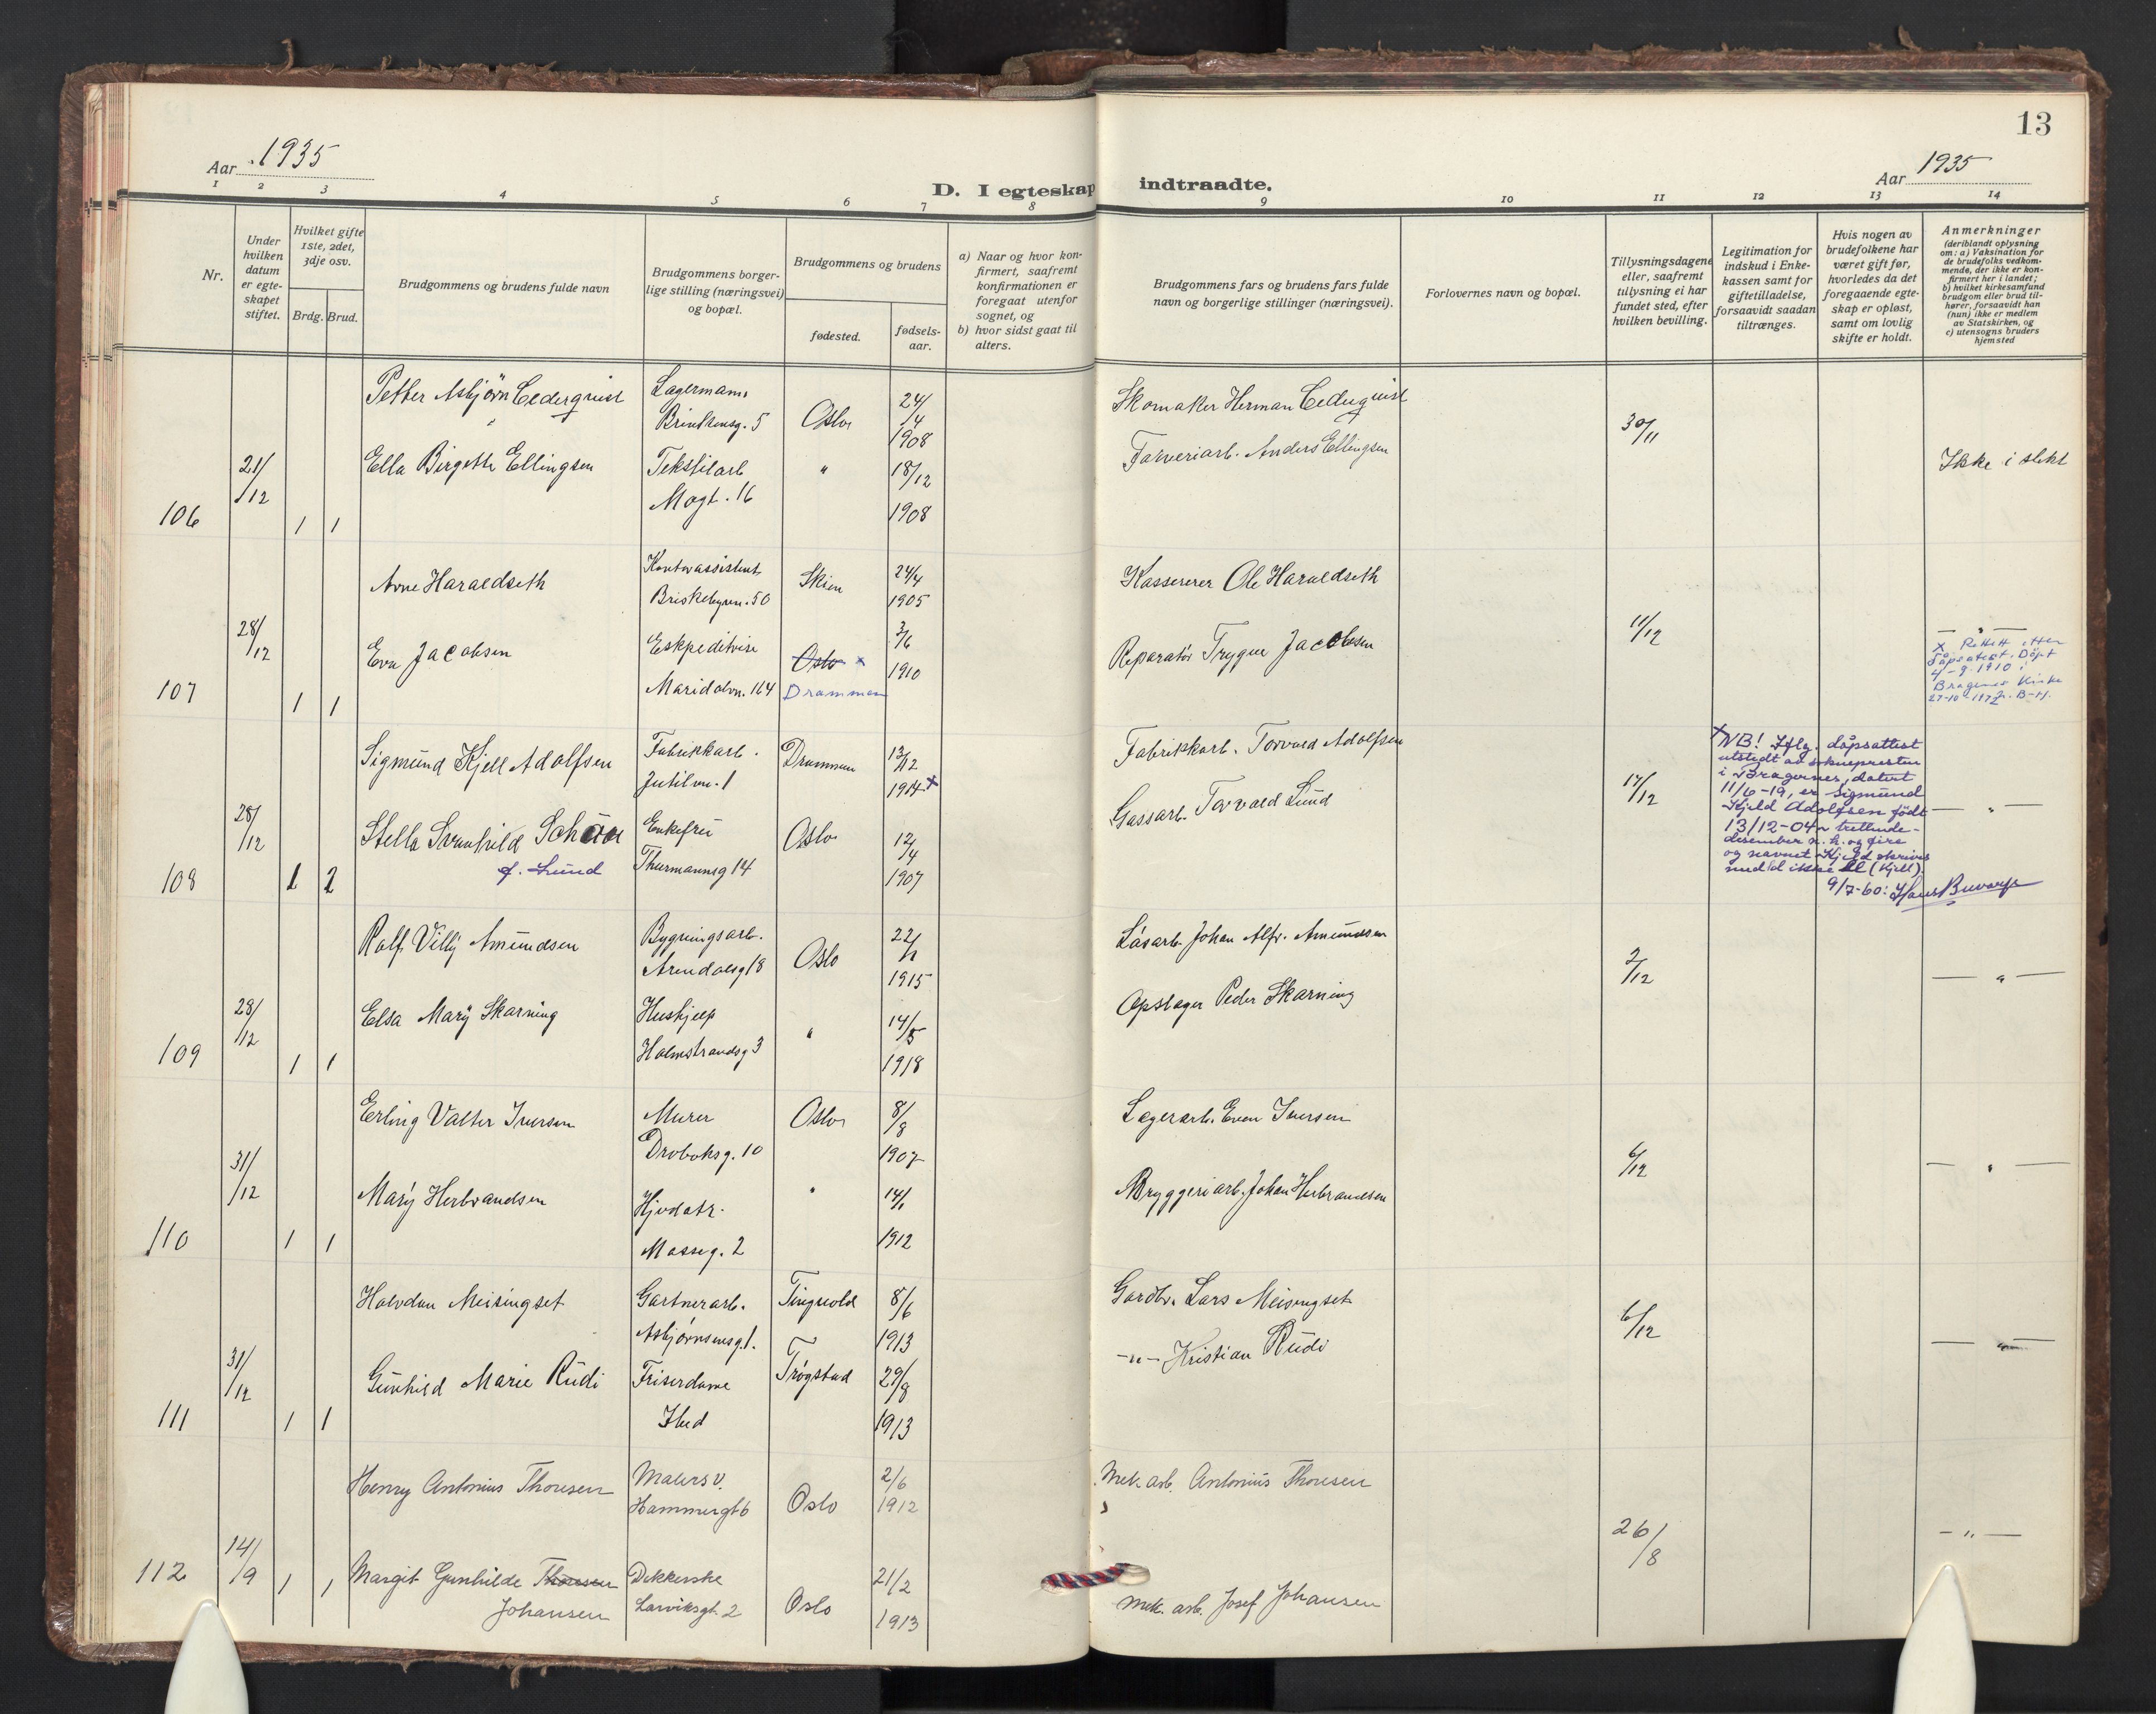 13
Aar 1935
D. I egteskap indtraadte.
Aar 1935
1 2 3 4 5 6 7 8 9 10 11 12 13 14
Nr.
Under
hvilken
datum
er egte-
skapet
stiftet.
Hvilket gifte
1ste, 2det,
3dje osv.
Brdg. Brud.
Brudgommens og brudens fulde navn
Brudgommens borger-
lige stilling (næringsvei)
og bopæl.
Brudgommens og brudens
fødested.
fødsels-
aar.
a) Naar og hvor kon-
firmert, saafremt
konfirmationen er
foregaat utenfor
sognet, og
b) hvor sidst gaat til
alters.
Brudgommens fars og brudens fars fulde
navn og borgerlige stillinger (næringsvei).
Forlovernes navn og bopæl.
Tillysningsdagene
eller, saafremt
tillysning ei har
fundet sted, efter
hvilken bevilling.
Legitimation for
indskud i Enke-
kassen samt for
giftetilladelse,
forsaavidt saadan
tiltrænges.
Hvis nogen av
brudefolkene har
været gift før,
hvorledes da det
foregaaende egte-
skap er opløst,
samt om lovlig
skifte er holdt.
Anmerkninger
(deriblandt oplysning
om: a) Vaksination for
de brudefolks vedkom-
mende, der ikke er kon-
firmert her i landet;
b) hvilket kirkesamfund
brudgom eller brud til-
hører, forsaavidt han
(hun) ikke er medlem
av Statskirken, og
c) utensogns bruders
hjemsted
106 21/12 1 1
Petter Asbjørn Cederquist Lagermann Oslo 24/4 Skomaker Herman Cederquist 30/11
Brinkensg. 5 1908
Ella Birgette Ellingsen Tekstilarb " 18/12 Farveriarb. Anders Ellingsen Ikke i slekt
Mogt. 16 1908
107 28/12 1 1
Arne Haraldseth Kontorassistent Skien 24/4 Kasserer Ole Haraldseth 11/12
Briskebyvn. 50 1905
Eva Jacobsen Ekspeditrise Oslo x 3/6 Reparatør Trygve Jacobsen — " —
Maridalvn. 164 Drammen 1910
x Rettet etter
dåpsattest. Døpt
4-9-1910 i
Bragernes Kirke
108 28/12 1 2
Sigmund Kjell Adolfsen Fabrikkarb. Drammen 13/12 Fabrikkarb. Torvald Adolfsen 17/12
Jutulvn. 1 1914 x
Stella Svanhild Schau Enkefru Oslo 12/4 Gassarb. Torvald Lund — " —
f. Lund Thurmannsg 14 1907
x NB! Iflg. dåpsattest
utstedt av soknepresten
i Bragernes, datert
11/6-19, er Sigmund
Kjeld Adolfsen født
13/12-04 ~ trettende-
desember n. h. og fire
og navnet Kjeld skrives
med ld ikke ll (Kjell).
9/7-60: Hans
109 28/12 1 1
Rolf Villy Amundsen Bygningsarb. Oslo 22/1 Låsarb. Johan Alfr. Amundsen 2/12
Arendalsg 18 1915
Elsa Mary Skarning Hushjelp " 14/5 Opslager Peder Skarning — " —
Holmestrandsg 3 1918
110 31/12 1 1
Erling Valter Iversen Murer Oslo 8/8 Lagerarb. Even Iversen 6/12
Drøbaksg. 10 1907
Mary Herbrandsen Hj.v datr. " 14/1 Bryggeriarb. Johan Herbrandsen — " —
Mosseg. 2 1912
111 31/12 1 1
Halvdan Meisingset Gartnerarb. Tingvold 8/6 Gardbr. Lars Meisingset 6/12
Asbjørnsensg. 1. 1913
Gunhild Marie Rudi Friserdame Trøgstad 29/8 -"- Kristian Rudi — " —
Ibid 1913
112 14/9 1 1
Henry Antonius Thoresen Malersv. Oslo 2/6 Mek. arb. Antonius Thoresen 26/8
Hammergt 6 1912
Margit Gunhilde Thoresen Dekkerske Oslo 21/2 Mek. arb. Josef Johansen — " —
Johansen Larviksgt. 2 1913